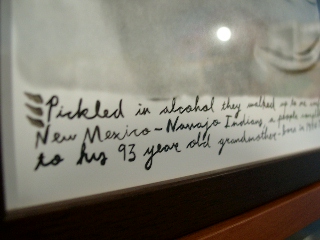 Pickled in alcohol they walked up to me
New Mexico - Navajo Indians, a people
to his 93 year old grandmother - born in